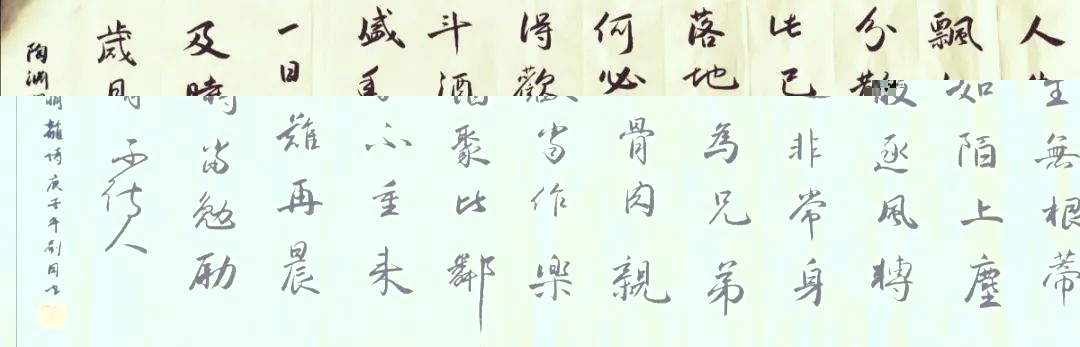 人生無根蒂
飄如陌上塵
分散逐風轉
此已非常身
落地為兄弟
何必骨肉親
得歡當作樂
斗酒聚比鄰
盛年不重來
一日難再晨
及時當勉勵
歲月不待人
陶淵明雜詩庚子年